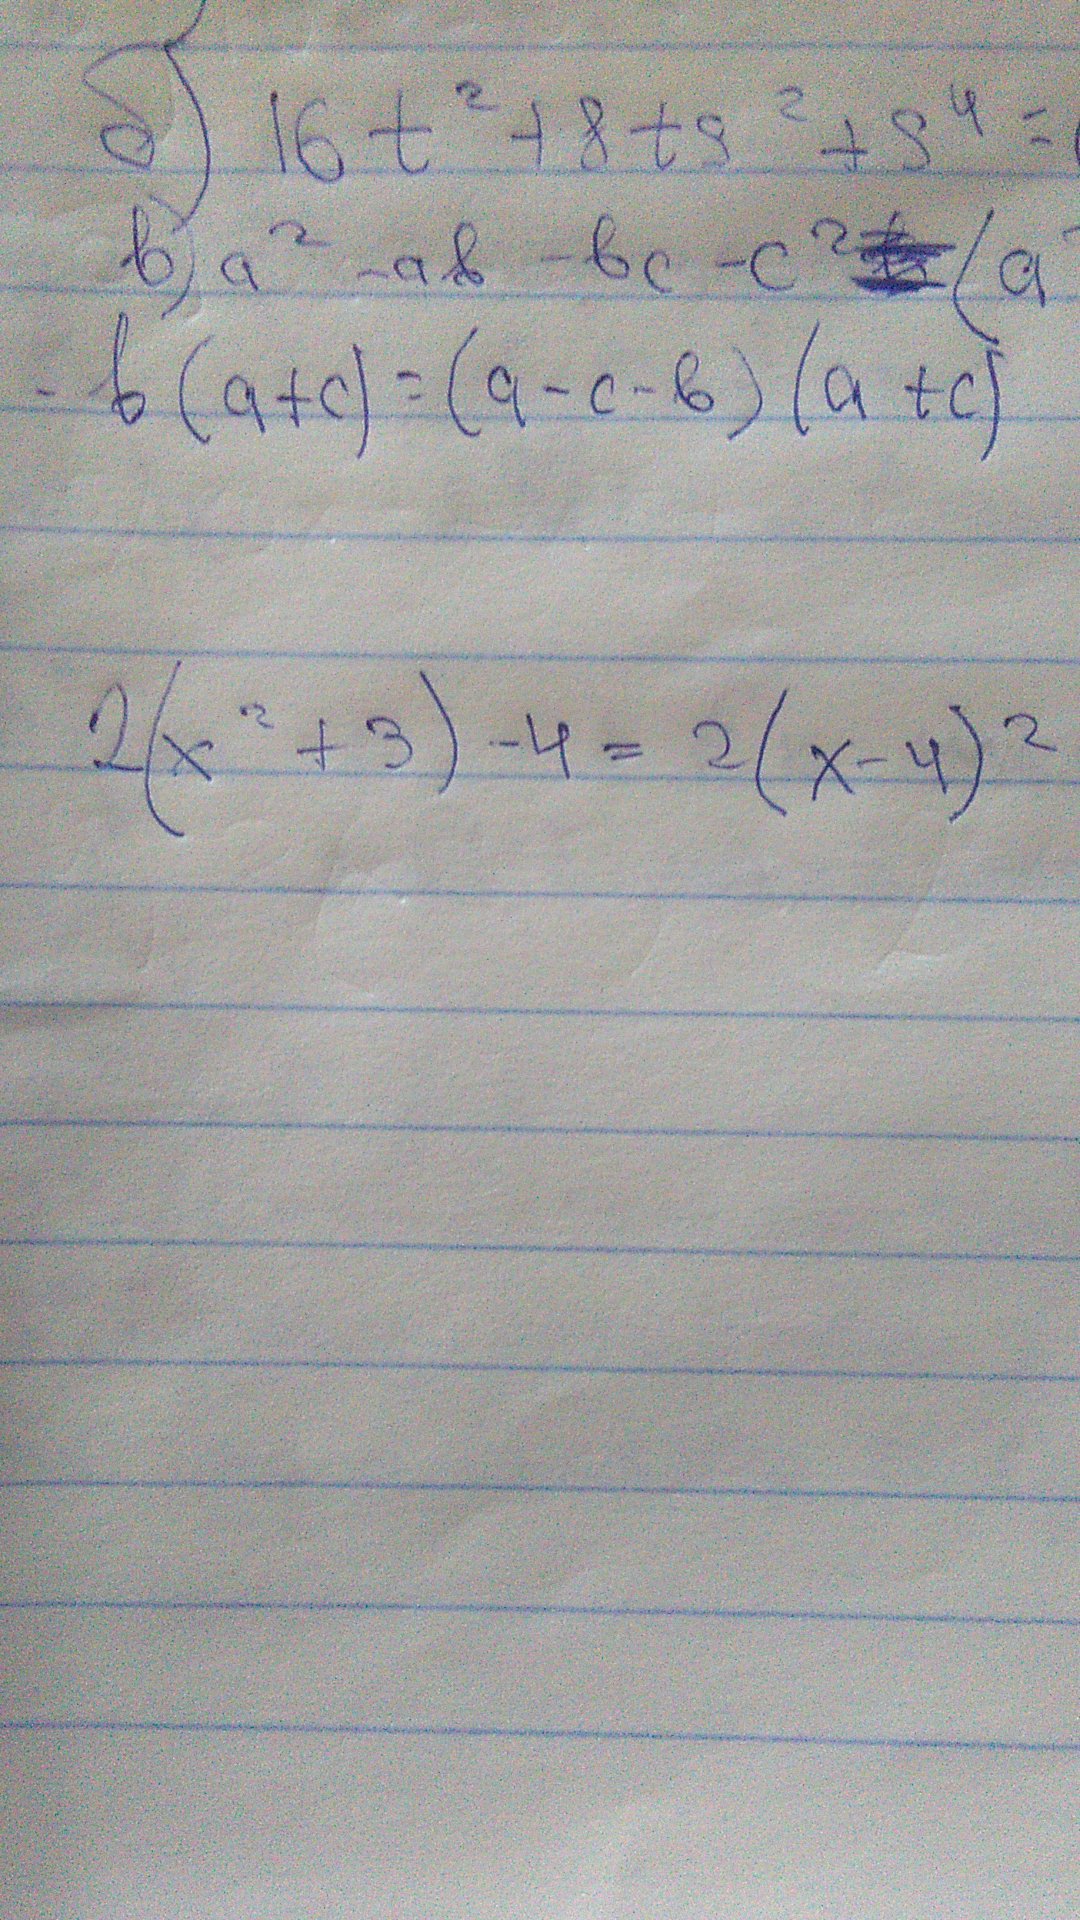 б) 16t² + 8ts² + s⁴ = (
в) a² - ab - bc - c² (a²
- b(a+c) = (a-c-b)(a+c)
2(x² + 3) - 4 = 2(x-4)²